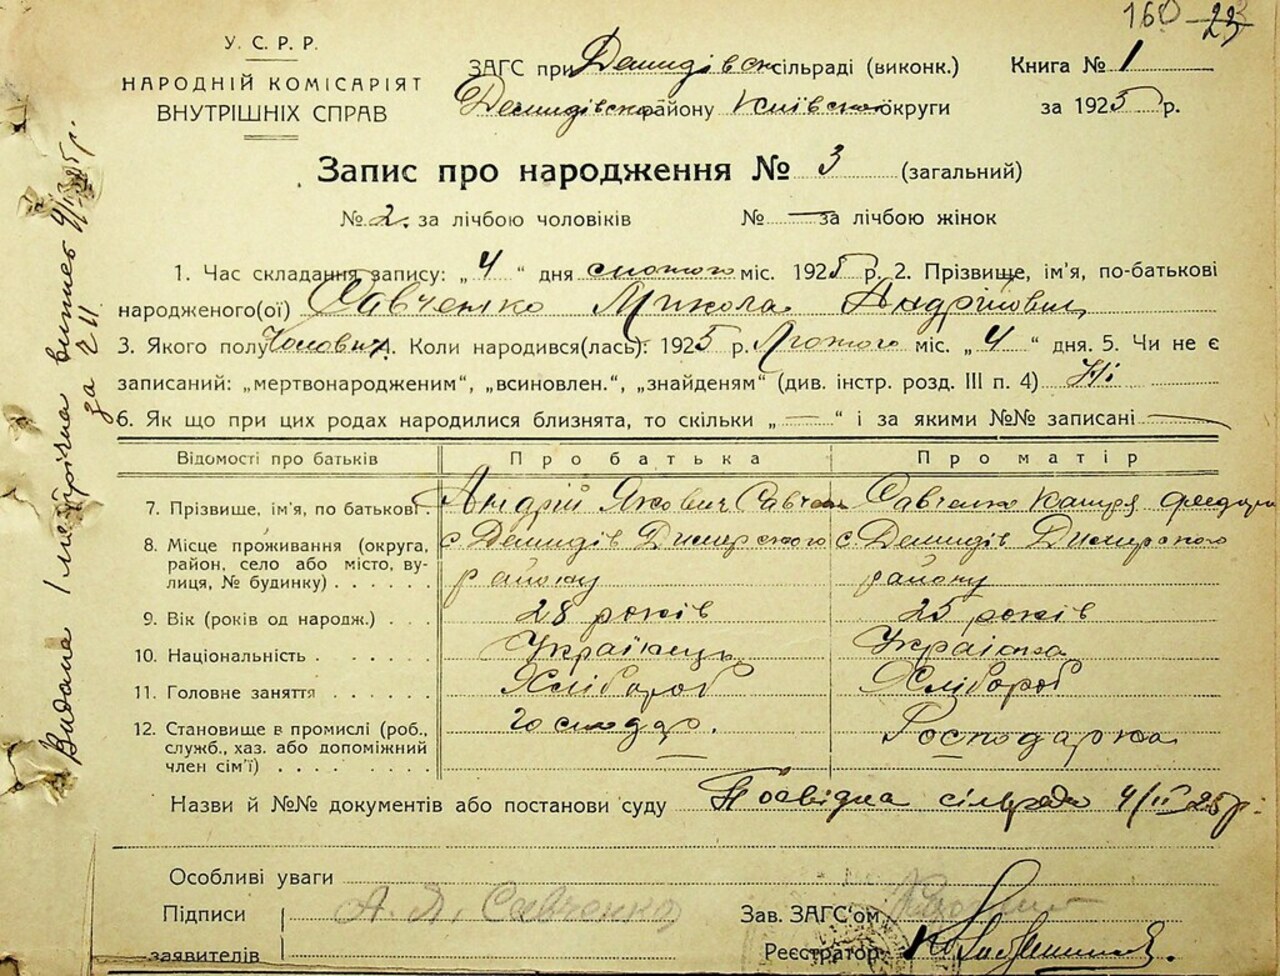 160 23
У. С. Р. Р.
НАРОДНІЙ КОМІСАРІЯТ
ВНУТРІШНІХ СПРАВ
ЗАГС при Демидівск сільраді (виконк.) Книга № 1
Демидівско району Київскої округи за 1925 р.
Запис про народження № 3 (загальний)
№ 2. за лічбою чоловіків № — за лічбою жінок
1. Час складання запису: „ 4 “ дня лютого міс. 1925 р. 2. Прізвище, ім'я, по-батькові
народженого(ої) Савченко Микола Андрійович
3. Якого полу Чоловіч. 4. Коли народився(лась): 1925 р. Лютого міс. „ 4 “ дня. 5. Чи не є
записаний: „мертвонародженим“, „всиновлен.“, „знайденям“ (див. інстр. розд. III п. 4) Ні
6. Як що при цих родах народилися близнята, то скільки „ — “ і за якими №№ записані —
Відомості про батьків Про батька Про матір
7. Прізвище, ім'я, по батькові. Андрій Якович Савчен Савченко Катря Федор
8. Місце проживання (округа, район, село або місто, вулиця, № будинку) . . . . . . с. Демидів Димерского району с. Демидів Димерского району
9. Вік (років од народж.) . . . 28 років 25 років
10. Національність . . . . . . Українець Українка
11. Головне заняття . . . . . . Хлібороб Хлібороб
12. Становище в промислі (роб., служб., хаз. або допоміжний член сім'ї) . . . . . Господар. Господарка
Назви й №№ документів або постанови суду Посвідка сільради 4/II 25р.
Особливі уваги
Підписи заявителів А. Я. Савченко
Зав. ЗАГС'ом
Реєстратор
Видана метрічна витяг
за № 11